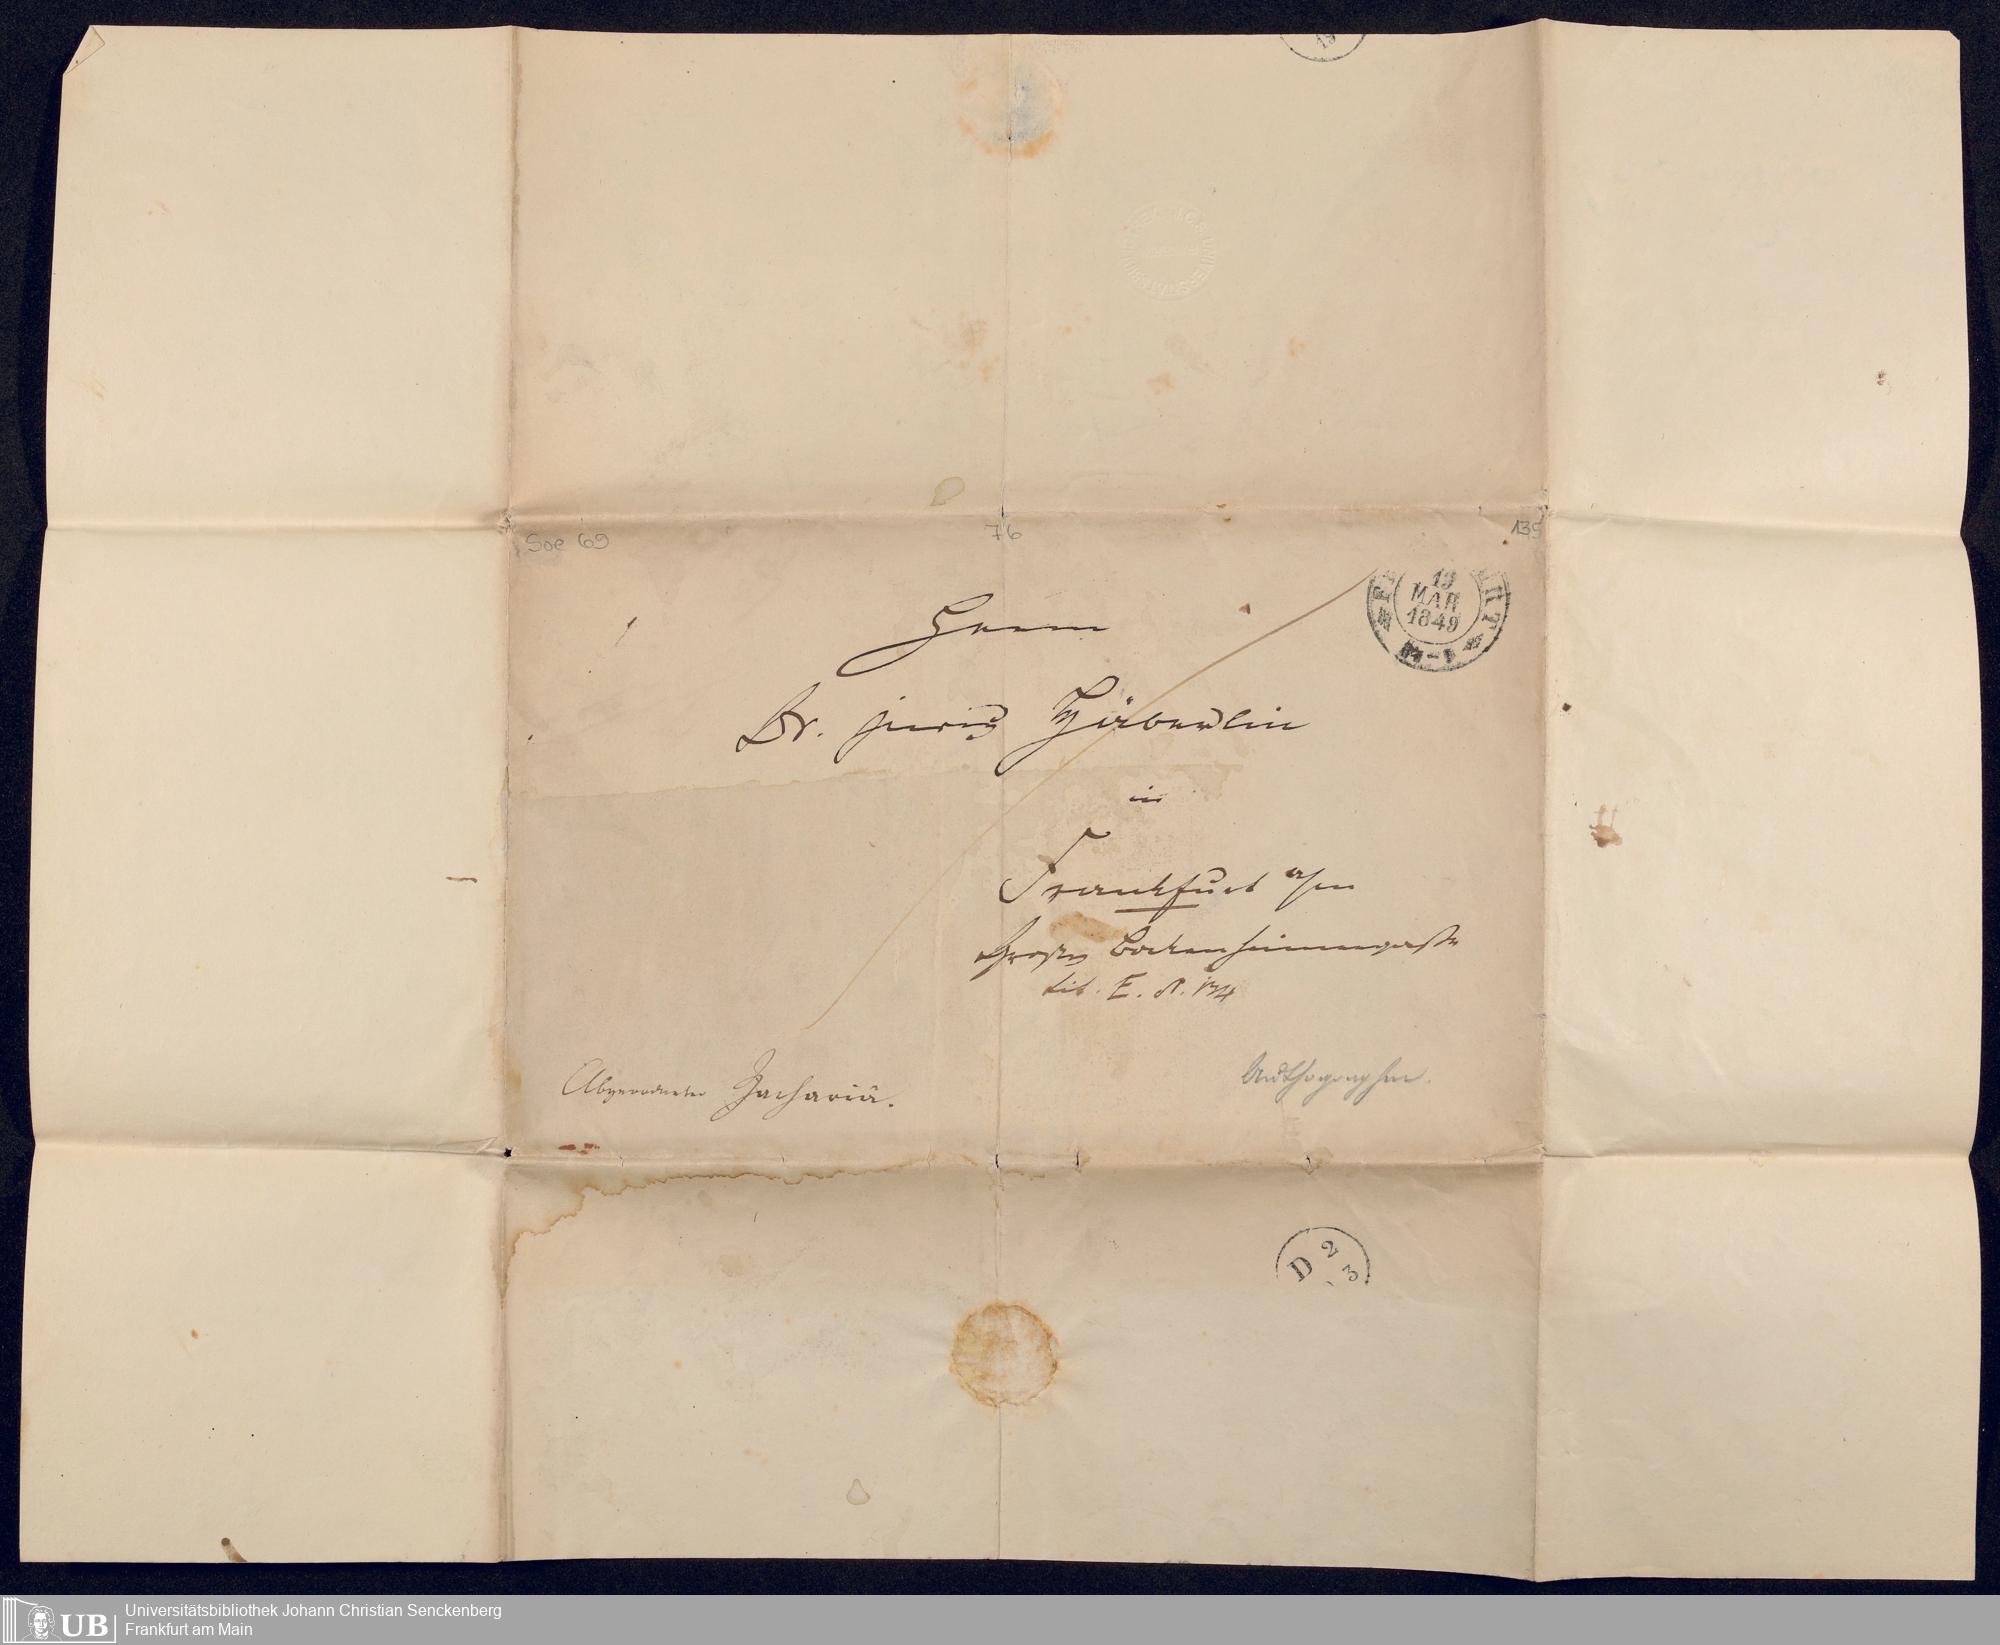 19
Soe 69
76
135
13
MAR
1849
Herrn
Dr. juris Häberlin
in
Frankfurt a/m
Große Bockenheimergasse
Lit. E. N.
Abgeordneter Zachariä.
D 2
3
Universitätsbibliothek Johann Christian Senckenberg
UB
Frankfurt am Main